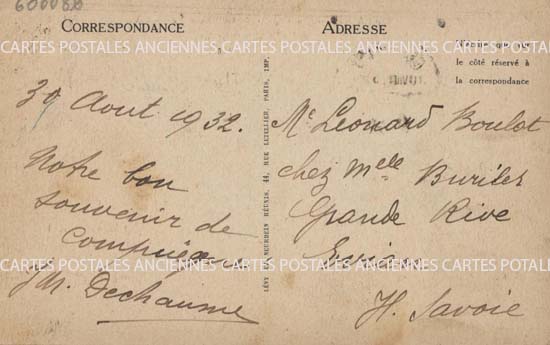 CORRESPONDANCE
ADRESSE
le côté réservé à
la correspondance
CARTES POSTALES ANCIENNES CARTES POSTALES ANCIENNES CARTES POSTALES
30 Aout 1932.
Notre bon
souvenir de
Compiègne
JM. Dechaume
LÉVY ET NEURDEIN RÉUNIS, 44, RUE LETELLIER, PARIS, IMP.
Mr Leonard Boulot
chez Melle
Grande Rive
Evian
H. Savoie
CARTES POSTALES ANCIENNES CARTES POSTALES ANCIENNES CARTES POSTALES